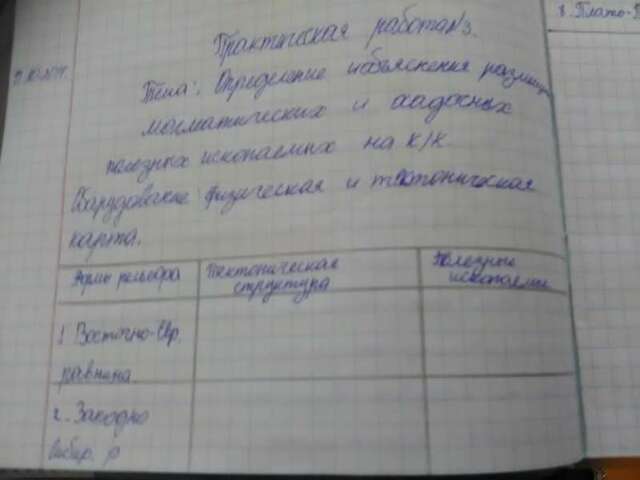 Практическая работа №3.
Тема: Определение и объяснения размещ
магматических и осадочных
полезных ископаемых на к/к
Оборудование: физическая и тектоническая
карта.
Формы рельефа
Тектоническая структура
Полезные ископаемые
1 Восточно-Евр.
равнина.
2. Западно
Сибир. р
8. Плато-